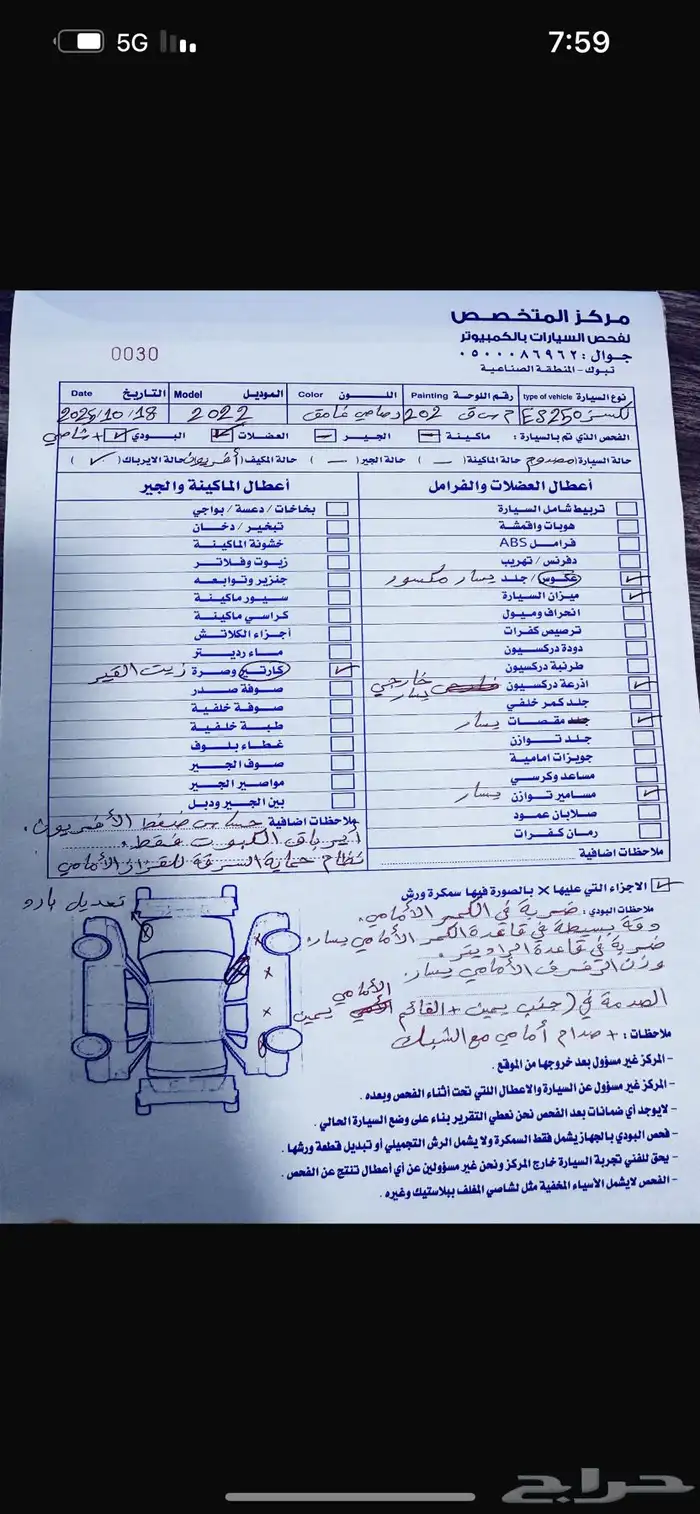 5G
7:59
مركز المتخصص
لفحص السيارات بالكمبيوتر
جوال : ٠٥٠٠٠٨٦٩٦٢
تبوك - المنطقة الصناعية
0030
نوع السيارة type of vehicle رقم اللوحة Painting اللون Color الموديل Model التاريخ Date
لكسز ES250 ح س ق 202 رصاصي غامق 2022 2025/10/18
الفحص الذي تم بالسيارة : ماكينة – الجير – العضلات ✓ البودي ✓ + شاصي
حالة السيارة (مصدوم) حالة الماكينة ( – ) حالة الجير ( – ) حالة المكيف (أفريون) حالة الايرباك ( ✓ )
أعطال العضلات والفرامل
تربيط شامل السيارة
هوبات واقمشة
فرامل ABS
دفرنس / تهريب
✓ عكوس / جلد يسار مكسور
✓ ميزان السيارة
انحراف وميول
ترصيص كفرات
دودة دركسيون
طرنبة دركسيون
✓ اذرعة دركسيون خارجي يسار
جلد كمر خلفي
✓ جلد مقصات يسار
جلد توازن
جويزات امامية
مساعد وكرسي
✓ مسامير توازن يسار
صلابان عمود
رمان كفرات
ملاحظات اضافية
أعطال الماكينة والجير
بخاخات / دعسة / بواجي
تبخير / دخان
خشونة الماكينة
زيوت وفلاتر
جنزير وتوابعه
سيور ماكينة
كراسي ماكينة
أجزاء الكلاتش
ماء رديتر
✓ كارتير وصرة زيت القير
صوفة صدر
صوفة خلفية
طبة خلفية
غطاء بلوف
صوف الجير
مواصير الجير
بين الجير ودبل
ملاحظات اضافية حساس ضغط الأفريون.
أيرباق الكبوت فقط.
نظام حماية السرقة للقزاز الأمامي
✓ الاجزاء التي عليها × بالصورة فيها سمكرة ورش
تعديل بارد
ملاحظات البودي : ضربة في الكمر الأمامي.
دقة بسيطة في قاعدة الكمر الأمامي يسار.
ضربة في قاعدة الراديتر.
وزن الرفرف الأمامي يسار.
الصدمة في (جنب يمين + القائم الأمامي يمين
ملاحظات : + صدام أمامي مع الشبك
- المركز غير مسؤول بعد خروجها من الموقع .
- المركز غير مسؤول عن السيارة والاعطال اللتي تحت أثناء الفحص وبعده .
- لايوجد أي ضمانات بعد الفحص نحن نعطي التقرير بناء على وضع السيارة الحالي .
- فحص البودي بالجهاز يشمل فقط السمكرة ولا يشمل الرش التجميلي أو تبديل قطعة ورشها .
- يحق للفني تجربة السيارة خارج المركز ونحن غير مسؤولين عن أي أعطال تنتج عن الفحص .
- الفحص لايشمل الأسياء المخفية مثل لشاصي المغلف ببلاستيك وغيره .
حراج